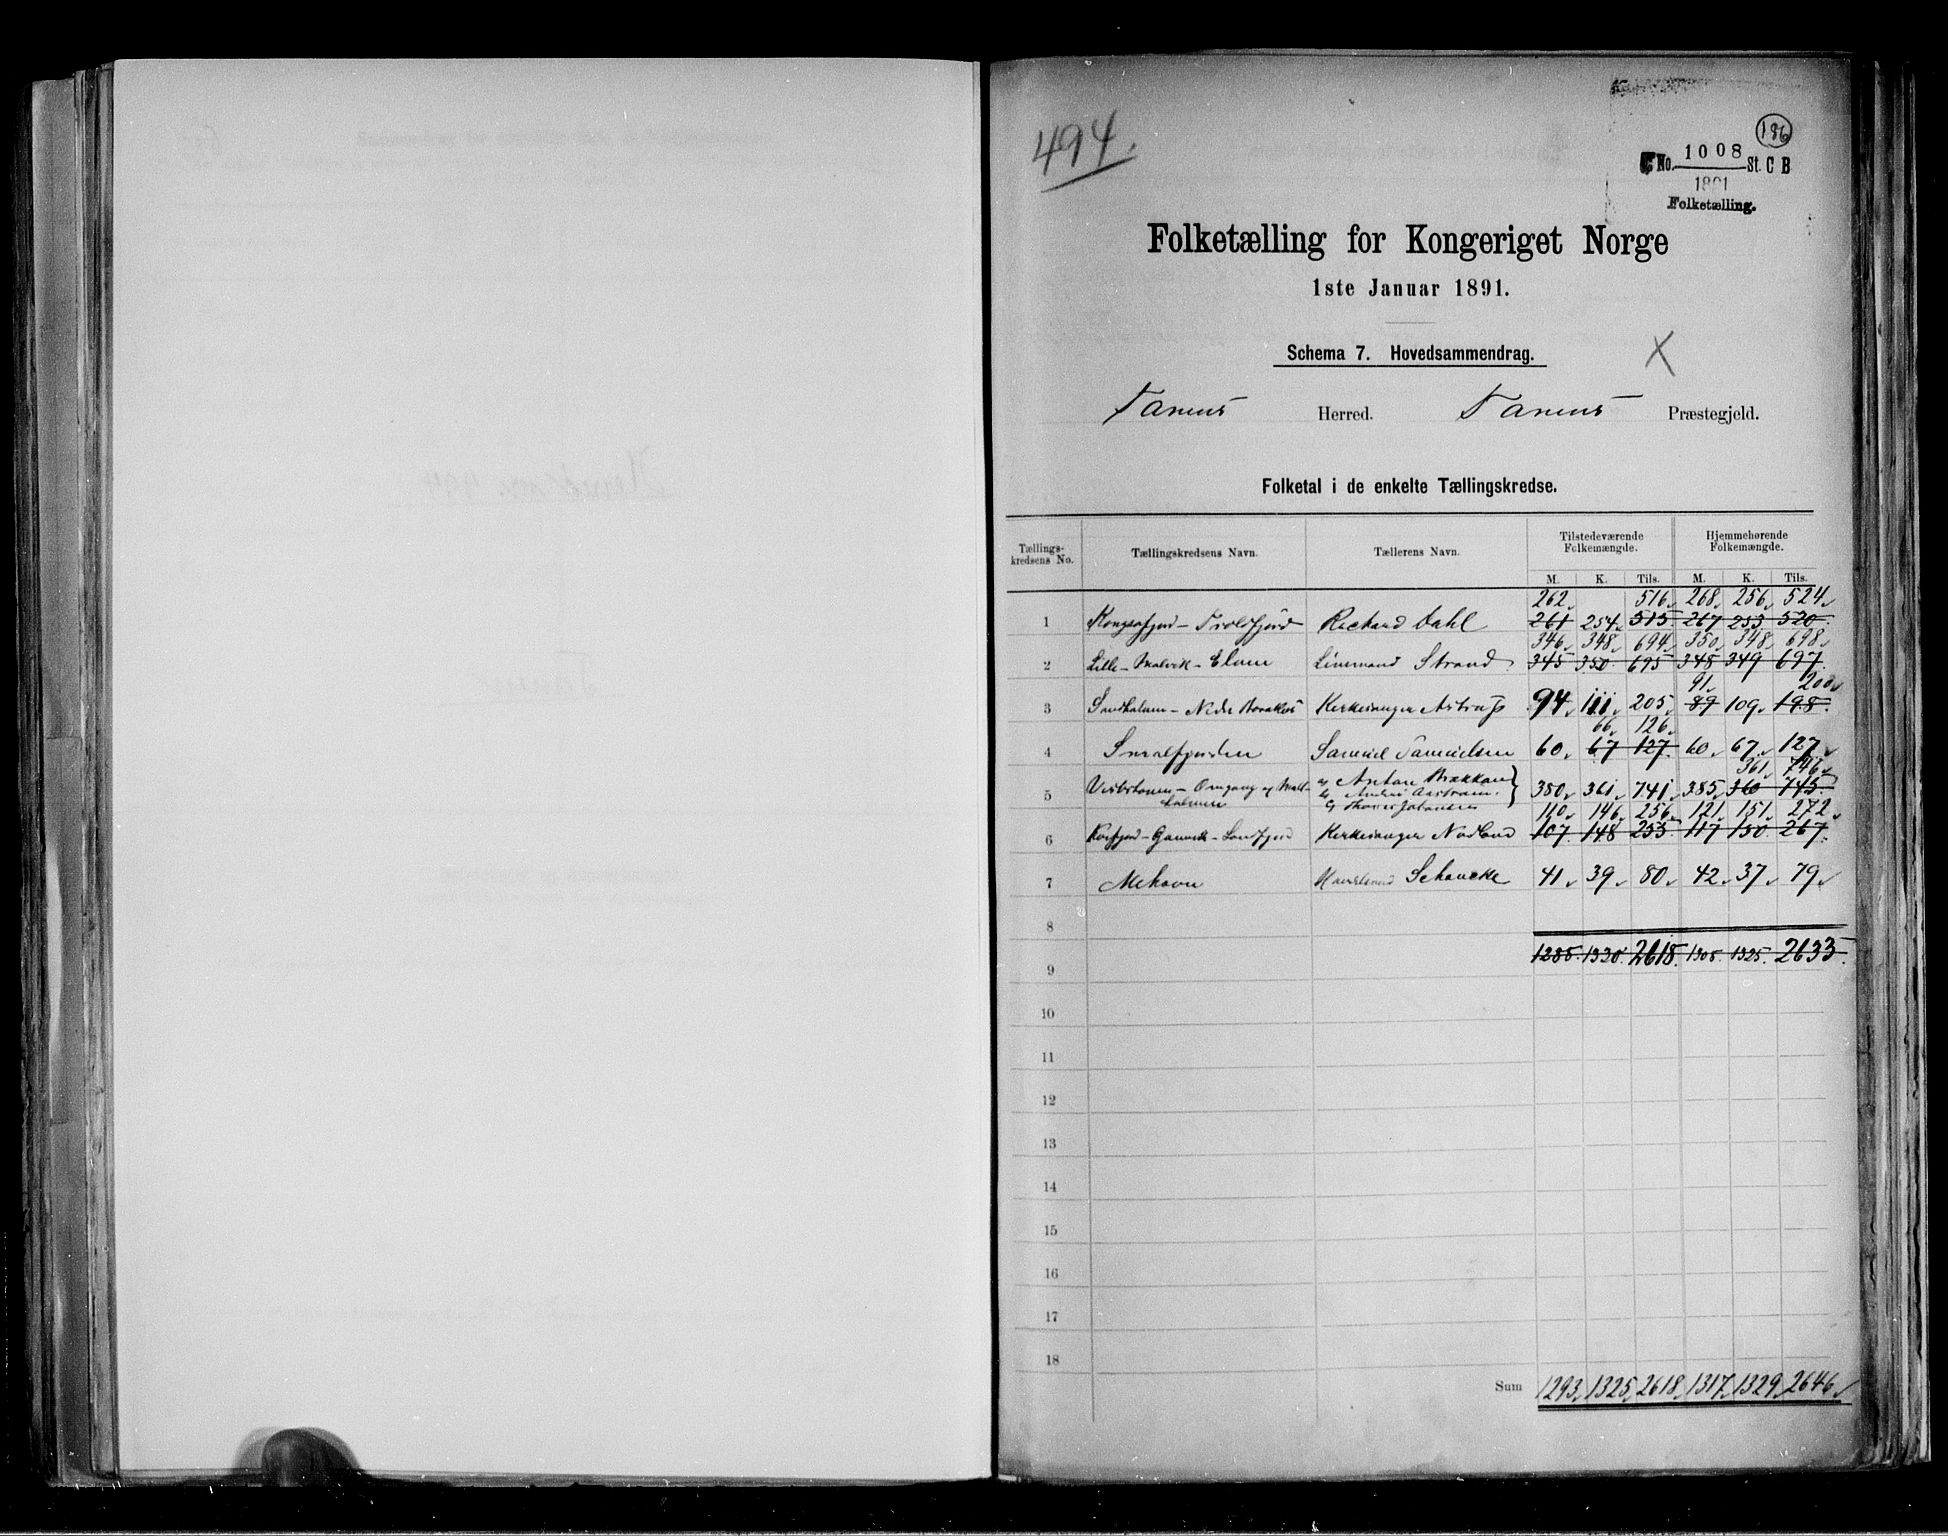 494.
186
No. 1008 St. C B
1891
Folketælling.
Folketælling for Kongeriget Norge
1ste Januar 1891.
Schema 7. Hovedsammendrag.
X
Tanens Herred. Tanens Præstegjeld.
Folketal i de enkelte Tællingskredse.
Tællings-kredsens No. Tællingskredsens Navn. Tællerens Navn. Tilstedeværende Folkemængde. Hjemmehørende Folkemængde.
M. K. Tils. M. K. Tils.
262 516 268 256 524
1 Kongsfjord - Rickard Dahl 261 254 515 267 253 520
346 348 694 350 348 698
2 Lille - Strand 345 350 695 348 349 697
91 200
3 Kirkesanger Astrup 94 111 205 89 109 198
66 126
4 Smalfjorden Samuel Samuelsen 60 67 127 60 67 127
361 746
5 Omgang og a, Anton Brækkan 380 361 741 385 360 745
110 146 256 121 151 272
6 Kirkesanger 107 148 255 117 150 267
7 Mehavn Schancke 41 39 80 42 37 79
8
9 1288 1330 2618 1308 1325 2633
10
11
12
13
14
15
16
17
18
Sum 1293 1325 2618 1317 1329 2646